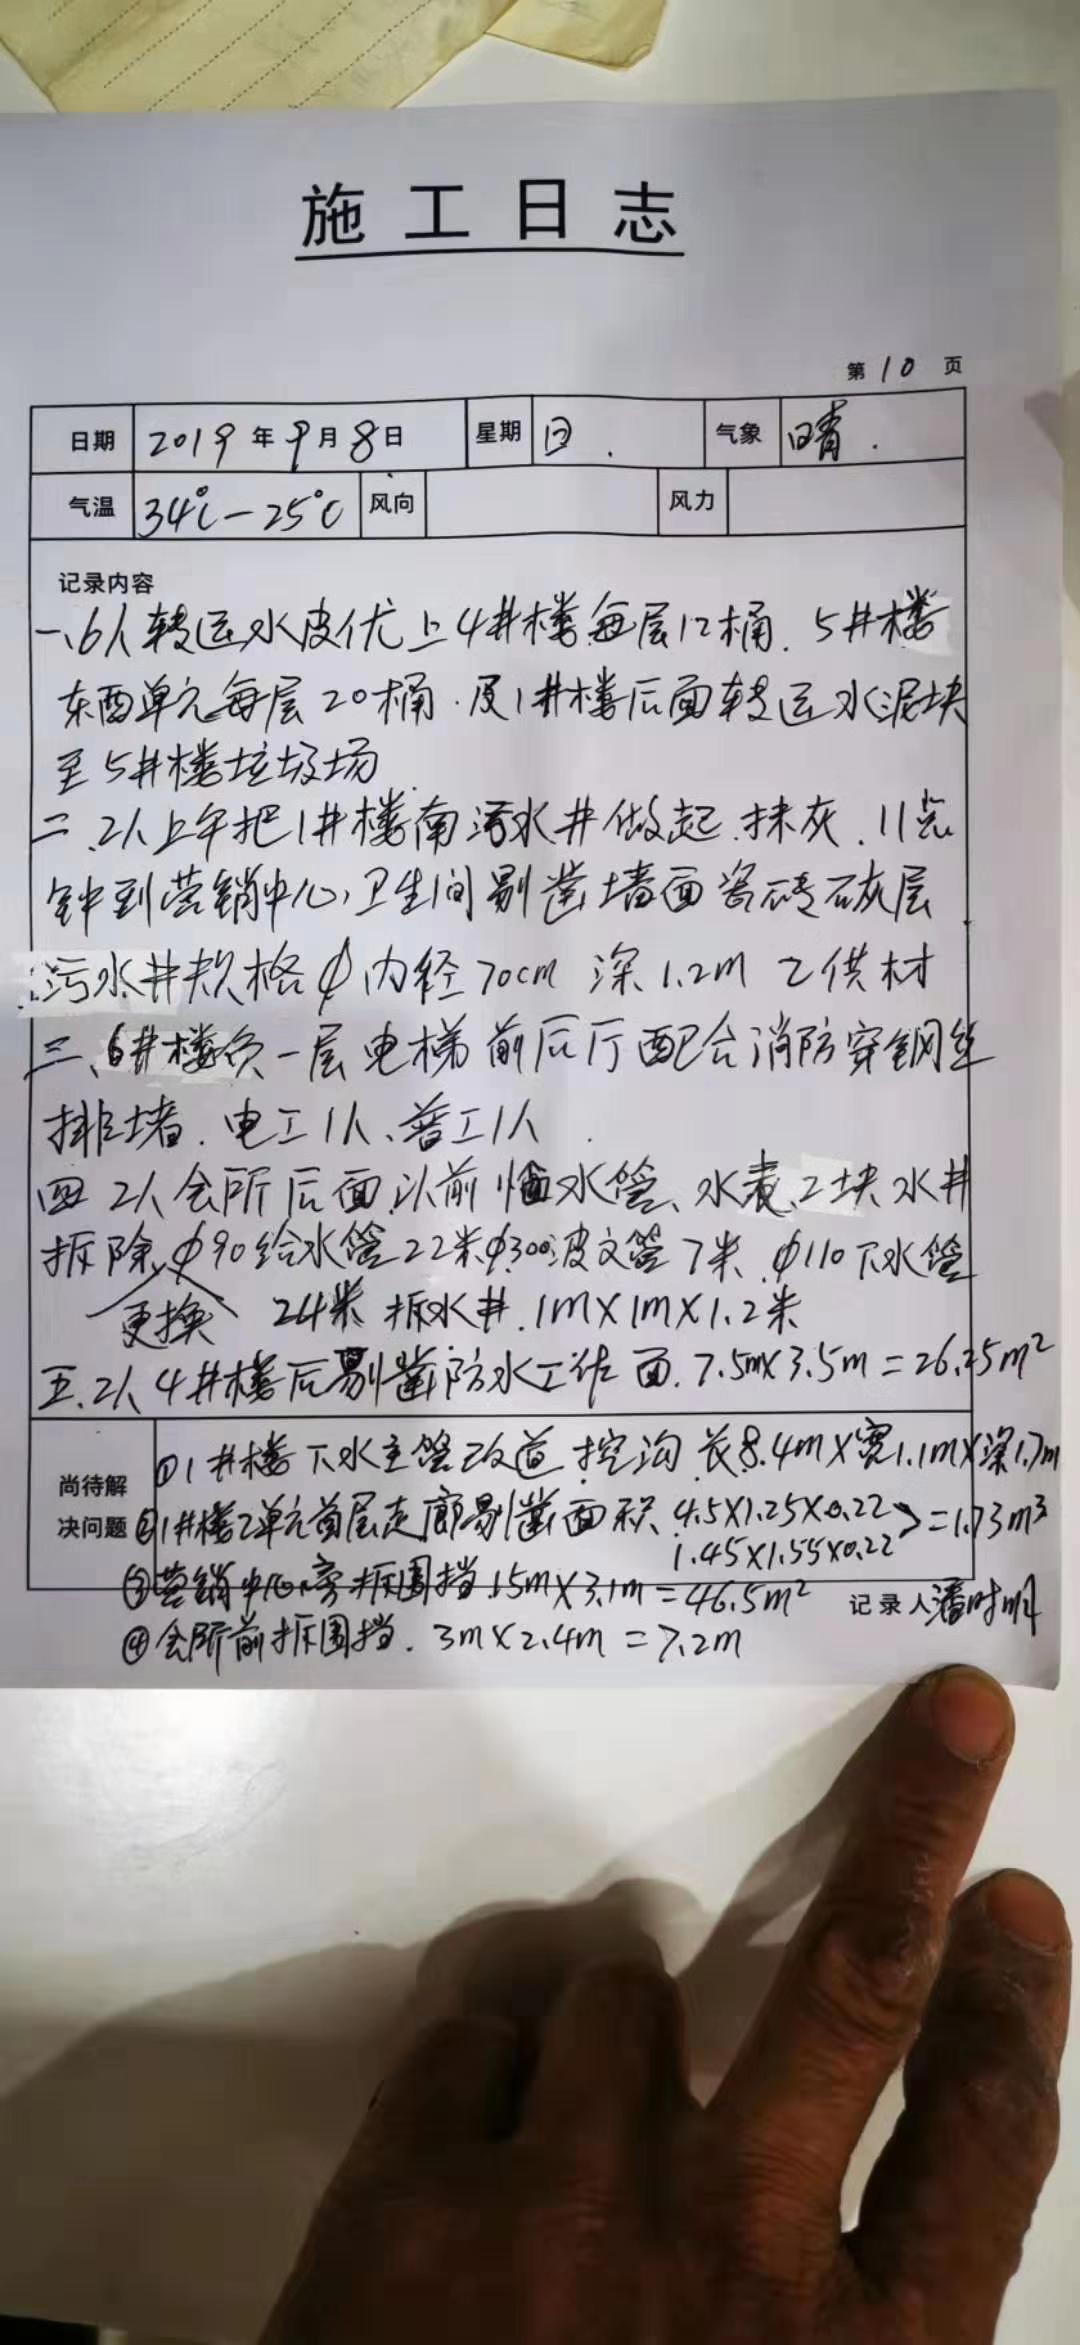 施工日志
第 10 页
日期 2019年9月8日 星期 日. 气象 晴.
气温 34℃-25℃ 风向 风力
记录内容
一、6人转运水皮优上4井楼每层12桶. 5井楼
东西单元每层20桶.及1井楼后面转运水泥块
至5井楼垃圾场
二、2人上午把1井楼南污水井做起.抹灰.11点
钟到营销中心,卫生间剔凿墙面瓷砖灰层
污水井规格φ内径70cm 深1.2m 乙供材
三、6井楼负一层电梯前后厅配合消防穿钢丝
排堵.电工1人、普工1人.
四 2人会所后面以前 水管、水表、2块水井
拆除、φ90给水管22米φ300波文管7米.φ110下水管
更换 24米 拆水井.1m×1m×1.2米
五.2人4井楼后剔凿防水工作面.7.5m×3.5m=26.25m²
尚待解决问题
①1井楼下水主管改道挖沟 长8.4m×宽1.1m×深1.7m
②1井楼2单元首层走廊剔凿面积 4.5×1.25×0.22 >=1.73m³
1.45×1.55×0.22
③营销中心旁拆围挡.15m×3.1m=46.5m²
记录人潘时明
④会所前拆围挡. 3m×2.4m=7.2m